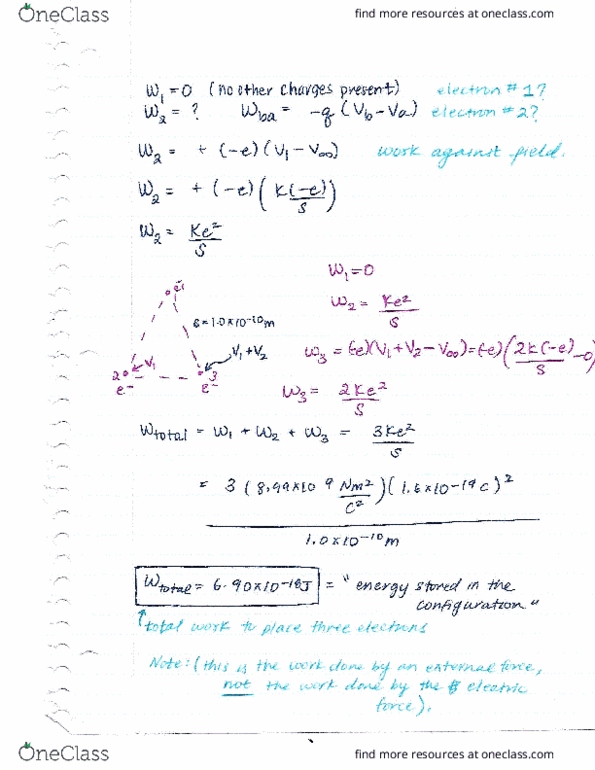 OneClass
find more resources at oneclass.com
W₁ = 0 (no other charges present) electron # 1?
W₂ = ? Wba = -q (Vb - Va) electron # 2?
W₂ = + (-e) (V₁ - V∞) work against field.
W₂ = + (-e) ( k(-e) / s )
W₂ = Ke² / s
W₁ = 0
e⁻ 1
W₂ = Ke² / s
s = 1.0×10⁻¹⁰ m
V₁ + V₂
W₃ = (-e)(V₁ + V₂ - V∞) = (-e) ( 2k(-e) / s - 0 )
2 V₁
e⁻
3
e⁻
W₃ = 2Ke² / s
Wtotal = W₁ + W₂ + W₃ = 3Ke² / s
= 3 ( 8.99×10⁹ Nm² / C² ) ( 1.6×10⁻¹⁹ C )²
1.0×10⁻¹⁰ m
Wtotal = 6.90×10⁻¹⁸ J = " energy stored in the
configuration "
↑ total work to place three electrons
Note: ( this is the work done by an external force,
not the work done by the electric
force ).
OneClass
find more resources at oneclass.com